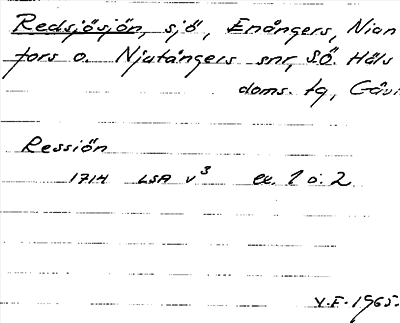 Redsjösjön, sjö, Enångers, Nian
fors o. Njutångers snr, S.Ö. Häls
doms. tg, Gävl
Ressiön
1714 LSA v³ ex. 1 o. 2
V.E. 1965.